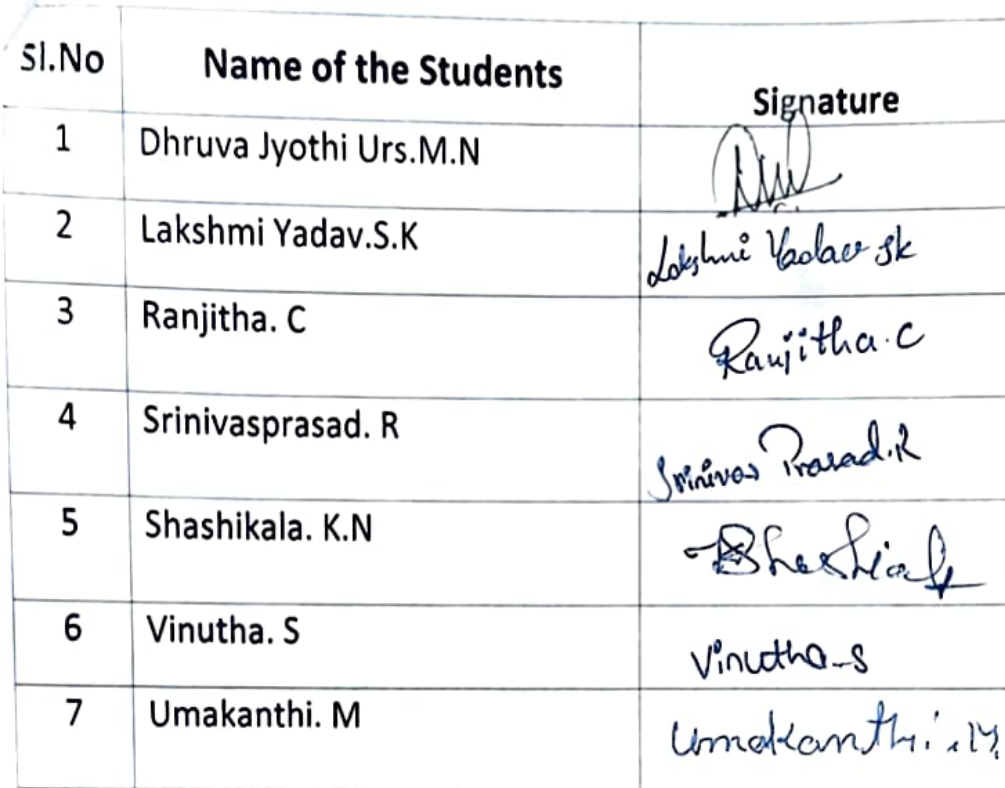 Sl.No Name of the Students Signature
1 Dhruva Jyothi Urs.M.N
2 Lakshmi Yadav.S.K Lakshmi Yadav Sk
3 Ranjitha. C Ranjitha.C
4 Srinivasprasad. R Srinivas Prasad.R
5 Shashikala. K.N
6 Vinutha. S Vinutha-S
7 Umakanthi. M Umakanthi.M